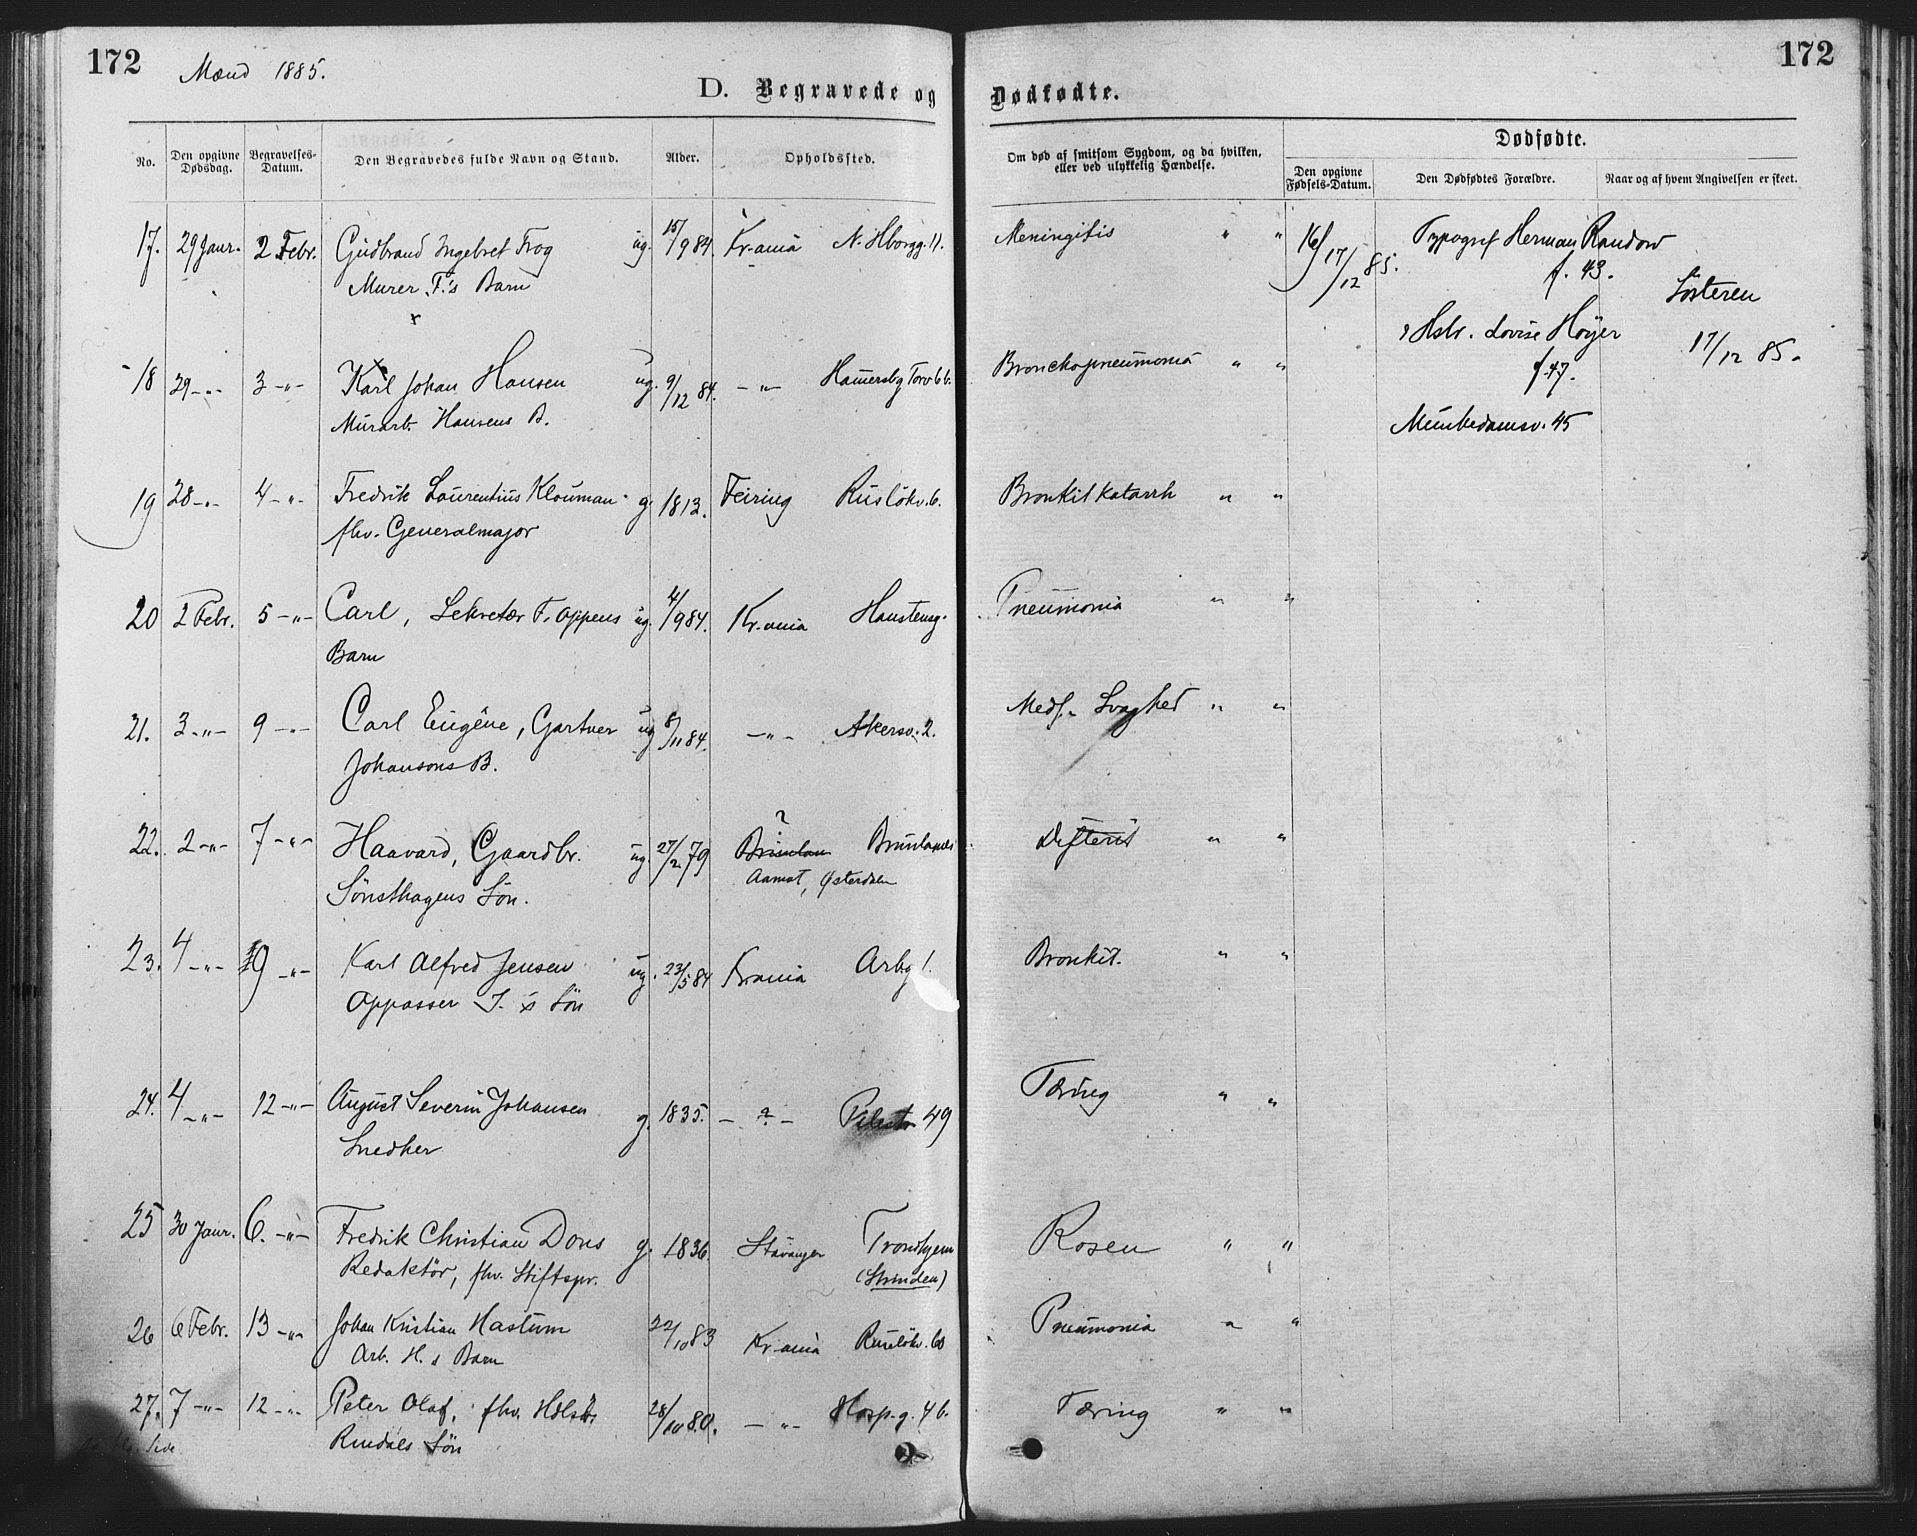 172
Mænd 1885.
172
D. Begravede og Dødfødte.
No.
Den opgivne Dødsdag.
Begravelses-Datum.
Den Begravedes fulde Navn og Stand.
Alder.
Opholdssted.
Om død af smitsom Sygdom, og da hvilken, eller ved ulykkelig Hændelse.
Dødfødte.
Den opgivne Fødsels-Datum.
Den Dødfødtes Forældre.
Naar og af hvem Angivelsen er skeet.
17. 29 Janr. 2 Febr. Gudbrand Ingebret Frog ug. 15/9 84. Kr.ania N. Hborgg. 11. Meningitis " "
Murer F.'s Barn
18 29 -"- 3 -"- Karl Johan Hansen ug. 9/12 84. -"- Hamersbg Torv 6 b. Bronchopneumonia " "
Murarb. Hansens B.
19 28 -"- 4 -"- Fredrik Laurentius Klouman g. 1813. Feiring Rusløkv. 6. Bronkit Katarrh " "
fhv. Generalmajor
20 2 Febr. 5 -"- Carl, Sekretær F. Oppens ug. 4/9 84. Kr.ania Hausteng. Pneumonia " "
Barn
21. 3 -"- 9 -"- Carl Eugéne, Gartner ug 8/11 84. -"- Akersv. 2. Medf. Svaghed " "
Johansons B.
22. 2 -"- 7 -"- Haavard, Gaardbr. ug. 27/2 79 ? Difterit " "
Sönsthagens Sön. Aamot, Østerdalen
23. 4 -"- 9 -"- Karl Alfred Jensen ug. 23/5 84 Krania Arbg 1. Bronkit. " "
Oppasser J.'s Sön
24. 4 -"- 12 -"- August Severin Johansen g. 1835. - ? - Pilestr 49 Tæring " "
Snedker
25 30 Janr. 6. -"- Fredrik Christian Dons g. 1836. Stavanger Trondhjem Rosen " "
Redaktör, fhv. Stiftspr. (Strinden)
26 6 Febr. 13 -"- Johan Kristian Hastum 22/10 83 Kr.ania Rusløkv. 60 Pneumonia " "
Arb. H.s Barn
27. 7 -"- 12 -"- Peter Olaf, fhv. Hdlsb. 28/10 80. -"- Hosp.g. 4 b. Tæring " "
Rindals Sön
Side
16/ 17/12 85.
Typogrf Herman Randow
f. 43.
Hstr. Lovise Høyer
f. 47.
Munkedamsv. 45
Sösteren
17/12 85.